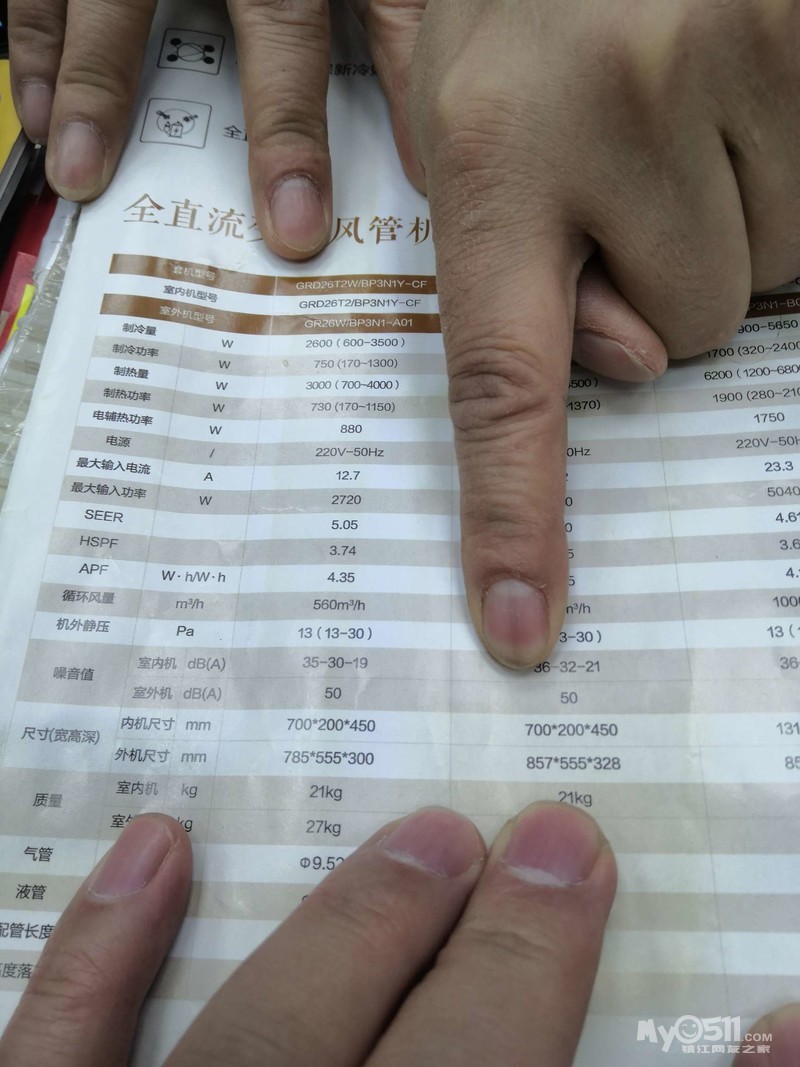 新冷
全
全直流 风管机
套机型号 GRD26T2W/BP3N1Y-CF
室内机型号 GRD26T2/BP3N1Y-CF
室外机型号 GR26W/BP3N1-A01 P3N1-B
制冷量 W 2600(600~3500) 900~5650
制冷功率 W 750(170~1300) 1700(320~2400
制热量 W 3000(700~4000) 500) 6200(1200~680
制热功率 W 730(170~1150) 1370) 1900(280~210
电辅热功率 W 880 1750
电源 / 220V~50Hz 0Hz 220V~50H
最大输入电流 A 12.7 2 23.3
最大输入功率 W 2720 0 5040
SEER 5.05 0 4.6
HSPF 3.74 5 3.6
APF W·h/W·h 4.35 5 4.
循环风量 m³/h 560m³/h m³/h 100
机外静压 Pa 13(13-30) 3-30) 13(1
噪音值 室内机 dB(A) 35-30-19 36-32-21 36
室外机 dB(A) 50 50
尺寸(宽高深) 内机尺寸 mm 700*200*450 700*200*450 131
外机尺寸 mm 785*555*300 857*555*328 85
质量 室内机 kg 21kg 21kg
室外 kg 27kg
气管 Φ9.52
液管
配管长度
高度落
My0511.COM
镇江网友之家